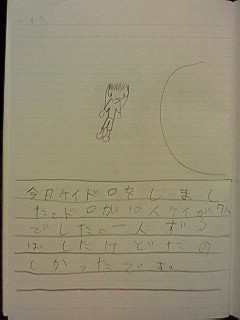 今日ケイドロをしまし
た。ドロが10人ケイが7人
でした。一人ずる
ばしたけどたの
しかったです。